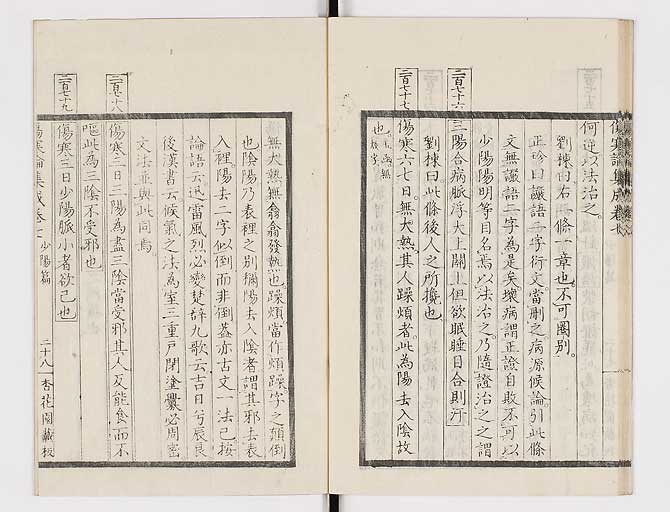 傷寒論集成卷七
何逆以法治之。
劉棟曰右二條一章也不可圈別。
正珍曰讝語二字衍文當刪之病源候論引此條
文無讝語二字為是矣壞病謂正證自敗不可以
少陽陽明等目名焉以法治之乃隨證治之之謂
二百七十六
三陽合病脈浮大上關上但欲眠睡目合則汗
劉棟曰此條後人之所攙也
二百七十七
傷寒六七日無大熱其人躁煩者此為陽去入陰故
也
無大熱無翕翕發熱也躁煩當作煩躁字之顛倒
也陰陽乃表裡之別稱陽去入陰者謂其邪去表
入裡陽去二字似倒而非倒蓋亦古文一法已按
論語云迅雷風烈必變楚辭九歌云吉日兮辰良
後漢書云候氣之法為室三重戶閉塗釁必周密
文法並與此同焉
二百七十八
傷寒三日三陽為盡三陰當受邪其人反能食而不
嘔此為三陰不受邪也
二百七十九
傷寒三日少陽脈小者欲已也
傷寒論集成卷七 少陽篇 二十八 杏花園藏板